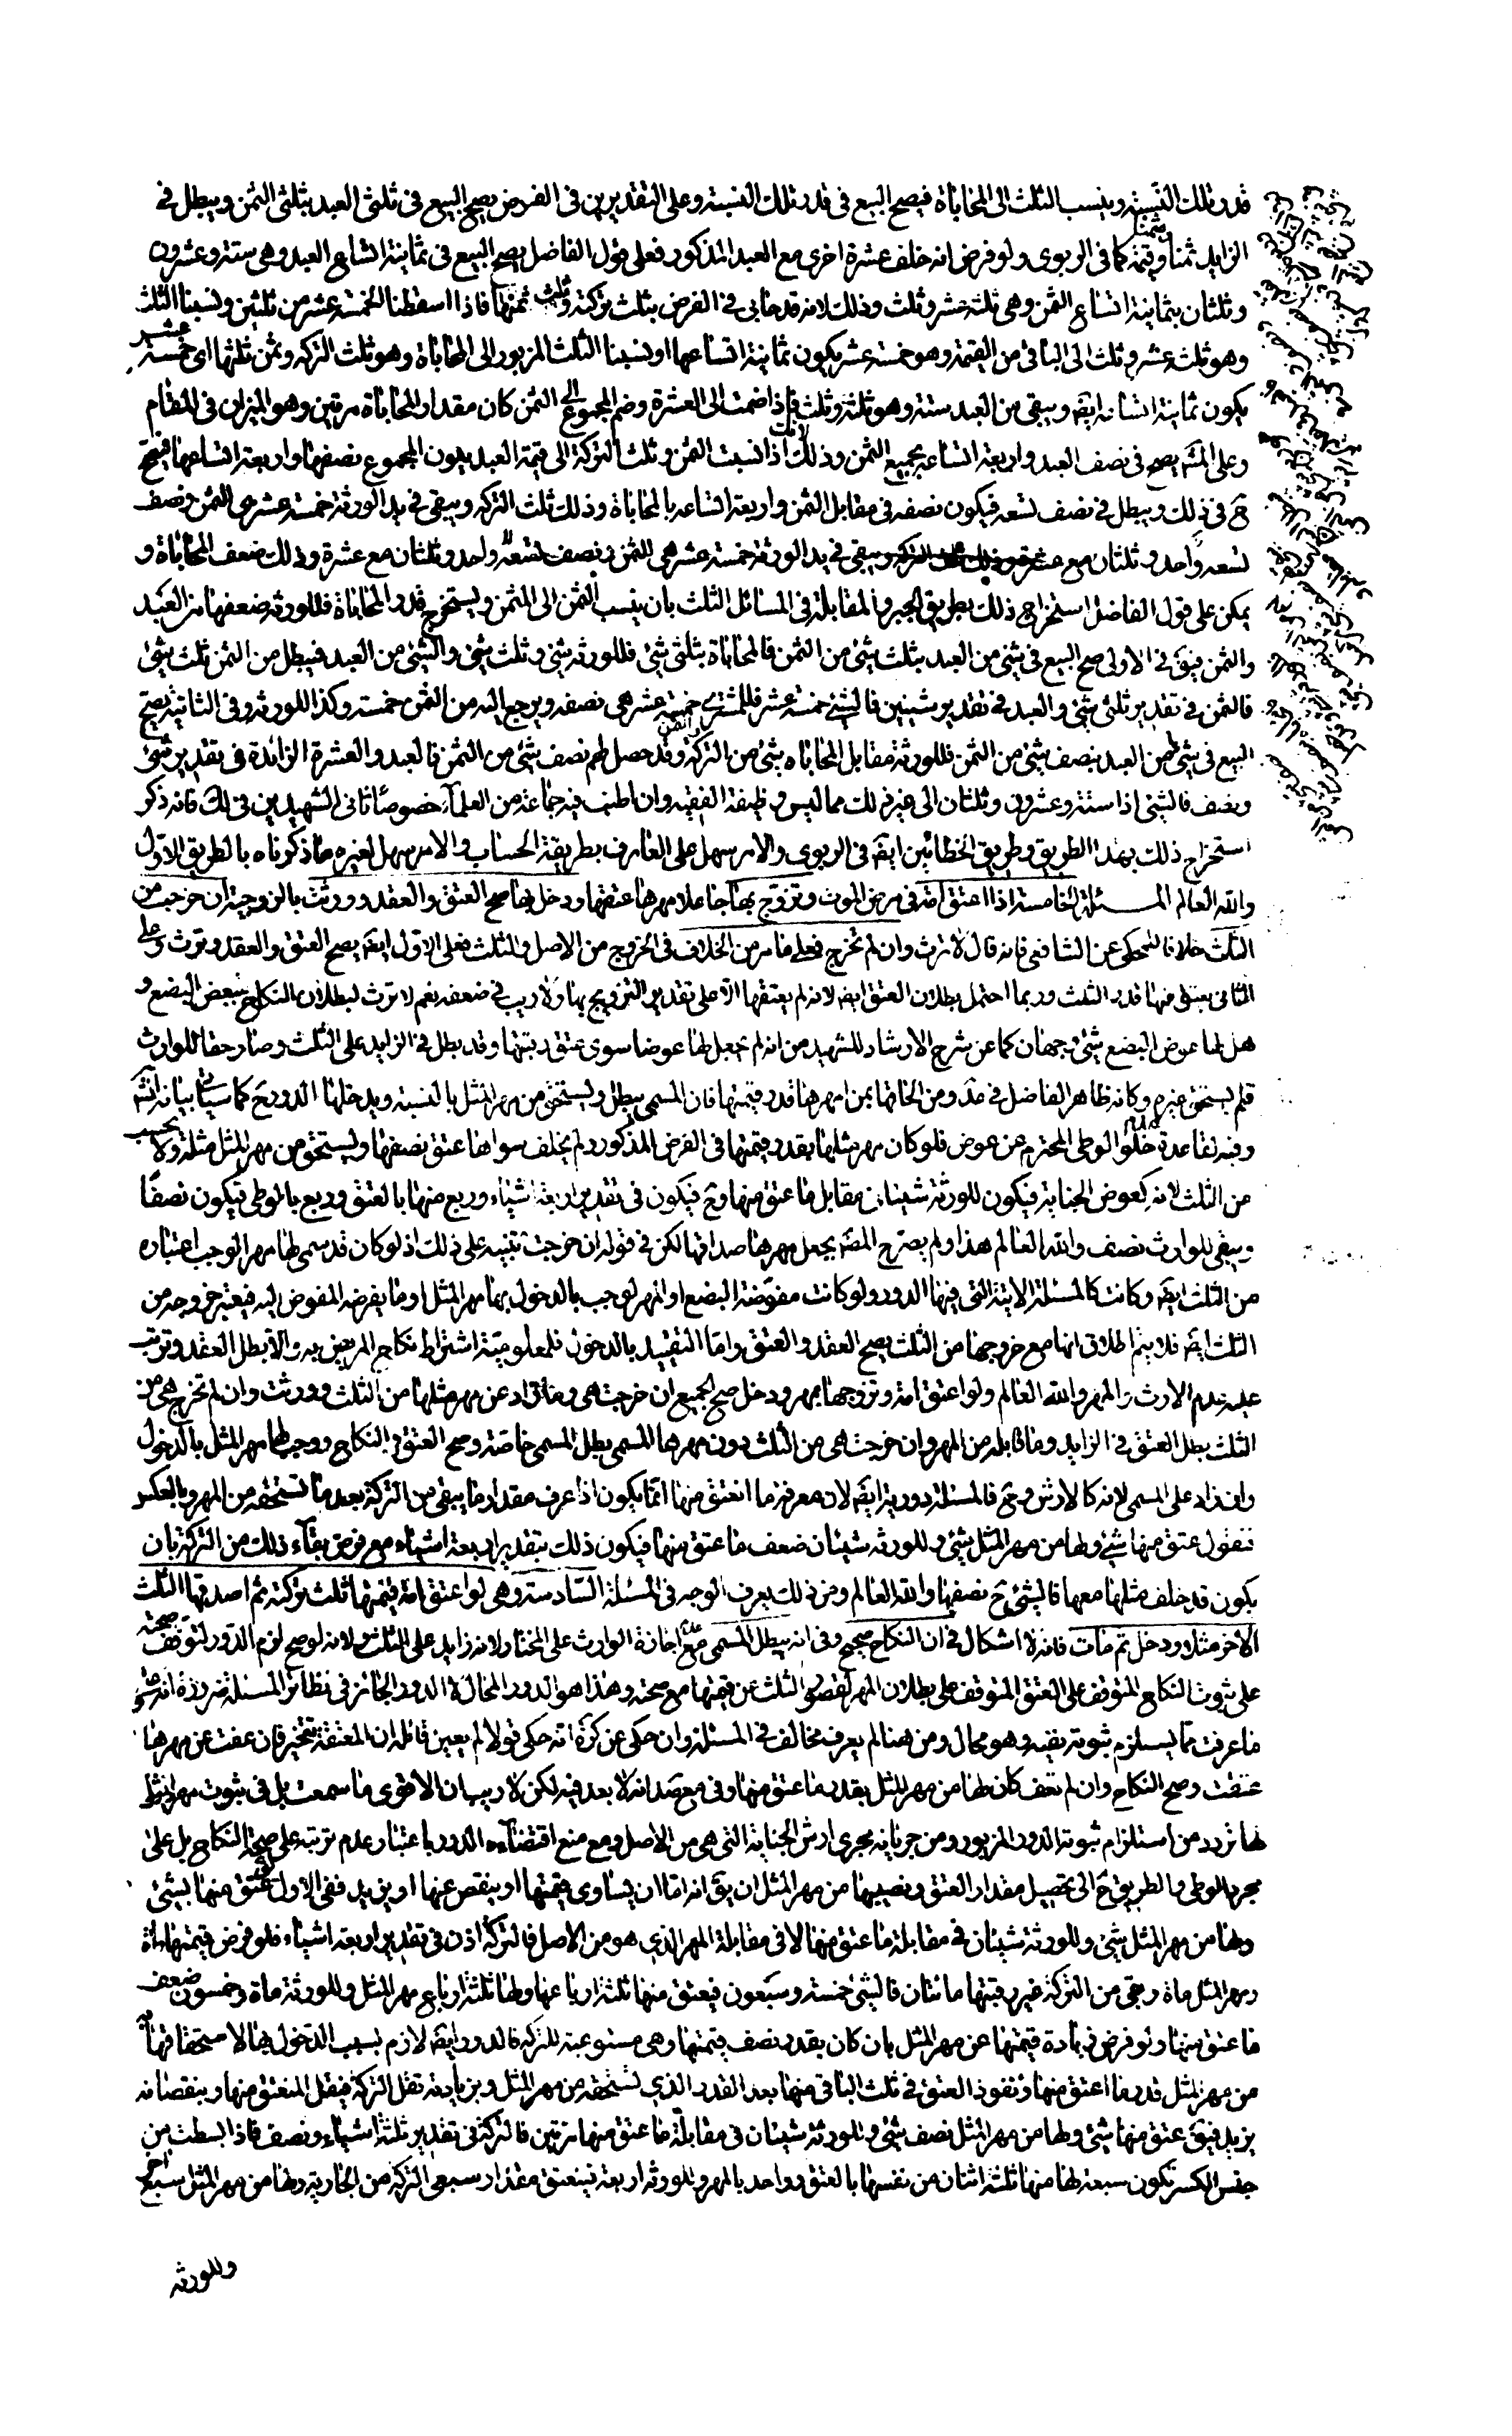 قدر تلك النسبة وينسب الثلث الى المحاباة فيصح البيع في قدر تلك النسبة وعلى التقديرين في الفرض يصح البيع في ثلثى العبد بثلثى الثمن ويبطل في
الزايد ثمنا وقيمة كما في الربوى ولو فرض انه خلف عشرة اخرى مع العبد المذكور فعلى قول الفاضل يصح البيع في ثمانية اتساع العبد وهى ستة وعشرون
وثلثان بثمانية اتساع الثمن وهى ثلثة عشر وثلث وذلك لانه قد حابى في الفرض بثلث تركته وثلث ثمنها فاذا اسقطنا الخمسة عشر من ثلثين ونسبنا الثلث
وهو ثلث عشر وثلث الى الباقى من القيمة وهو خمسة عشر يكون ثمانية اتساعها او نسبنا الثلث المزبور الى المحاباة وهو ثلث التركة وثمن ثلثها اى خمسة عشر
يكون ثمانية اتساعه ايض ويبقى من العبد ستة وهو ثلثة وثلث فاذا ضمت الى العشرة وضم المجموع الى الثمن كان مقدار المحاباة مرتين وهو الميزان في المقام
وعلى المش يصح في نصف العبد واربعة اتساعه بجميع الثمن وذلك لانك اذا نسبت الثمن وثلث التركة الى قيمة العبد يكون المجموع نصفها واربعة اتساعها فيصح
ح في ذلك ويبطل في نصف تسعه فيكون نصفه في مقابل الثمن واربعة اتساعه بالمحاباة وذلك ثلث التركة ويبقى في يد الورثة خمسة عشر هى الثمن ونصف
تسعه واحد وثلثان مع عشرة وذلك ضعف المحاباة و
يمكن على قول الفاضل استخراج ذلك بطريق الجبر والمقابلة في المسائل الثلث بان ينسب الثمن الى المثمن ويستخرج قدر المحاباة فللورثة ضعفها من العبد
والثمن فيق في الاولى صح البيع في شئ من العبد بثلث شئ من الثمن فالمحاباة بثلثى شئ فللورثة شئ وثلث شئ والشئ من العبد فيبطل من الثمن ثلث شئ
فالثمن في تقدير ثلثى شئ والعبد في تقدير شيئين فالشئ خمسة عشر فللمشترى خمسة عشر هى نصفه ويرجع اليه من الثمن خمسة وكذا للورثة وفي الثانية يصح
البيع في شئ من العبد بنصف شئ من الثمن فللورثة مقابل المحاباه شئ من التركة وقد حصل لهم نصف شئ من الثمن فالعبد والعشرة الزائدة في تقدير شئ
ونصف فالشئ اذا ستة وعشرون وثلثان الى غير ذلك مما ليس وظيفة الفقيه وان اطنب فيه جماعة من العلماء خصوصا ثانى الشهيدين في لك فانه ذكر
استخراج ذلك بهذا الطريق وطريق الخطائين ايض في الربوى والامر سهل على العارف بطريقة الحساب والامر سهل لغيره بما ذكرناه بالطريق الاول
والله العالم المسئلة الخامسة اذا اعتق امته في مرض الموت وتزوج بها جاعلا مهرها عتقها ودخل بها صح العتق والعقد وورثت بالزوجية ان خرجت من
الثلث خلافا للمحكى عن الشافعى فانه قال لا ترث وان لم تخرج فعلى ما مر من الخلاف في الخروج من الاصل والثلث فعلى الاول ايض يصح العتق والعقد وترث وعلى
الثانى يعتق منها قدر الثلث وربما احتمل بطلان العتق ايض لانه لم يعتقها الا على تقدير التزويج بها ولا ريب في ضعفه نعم لا ترث لبطلان النكاح بتبعض البضع و
هل لها عوض البضع شئ وجهان كما عن شرح الارشاد للشهيد من انه لم يجعل لها عوضا سوى عتق رقبتها وقد بطل في الزايد على الثلث وصار حقا للوارث
فلم يستحق غيره وكانه ظاهر الفاضل في عد ومن الحاقها بمن امهرها قدر قيمتها فان المسمى يبطل ويستحق من مهر المثل بالنسبة ويدخلها الدور ح كما سياتى بيانه انش
وفيه لقاعدة عدم خلو الوطى المحترم عن عوض فلو كان مهر مثلها بقدر قيمتها في الفرض المذكور ولم يخلف سواها عتق نصفها ويستحق من مهر المثل مثله ولا يحسب
من الثلث لانه كعوض الجناية فيكون للورثة شيئان مقابل ما عتق منها وح فيكون في تقدير اربعة اشياء وربع منها بالعتق وربع بالوطى فيكون نصفا
ويبقى للوارث نصف والله العالم هذا ولم يصرح المص بجعل مهرها صداقها لكن في قوله ان خرجت تنبيه على ذلك اذ لو كان قد سمى لها مهرا لوجب اعتباره
من الثلث ايض وكانت كالمسئلة الاتية التى فيها الدور ولو كانت مفوضة البضع او المهر لوجب بالدخول بها مهر المثل او ما يفرضه المفوض اليه فيعتبر خروجه من
الثلث ايض فلا يتم اطلاق انها مع خروجها من الثلث يصح العقد والعتق واما التقييد بالدخول فلمعلومية اشتراط نكاح المريض به والا بطل العقد وترتب
عليه عدم الارث والمهر والله العالم ولو اعتق امته وتزوجها بمهر ودخل صح الجميع ان خرجت هى وما زاد عن مهر مثلها من الثلث وورثت وان لم تخرج هى من
الثلث بطل العتق في الزايد وما قابله من المهر وان خرجت هى من الثلث دون مهرها المسمى بطل المسمى خاصة وصح العتق والنكاح ووجب لها مهر المثل بالدخول
وان زاد على المسمى لانه كالارش وح فالمسئلة دورية ايض لان معرفة ما انعتق منها انما يكون اذا عرف مقدار ما يبقى من التركة بعد ما تستحقه من المهر وبالعكس
فنقول عتق منها شئ ولها من مهر المثل شئ وللورثة شيئان ضعف ما عتق منها فيكون ذلك بتقدير اربعة اشياء مع فرض بقاء ذلك من التركة بان
يكون قد خلف مثلها معها فالشئ ح نصفها والله العالم ومن ذلك يعرف الوجه في المسئلة السادسة وهى لو اعتق امة قيمتها ثلث تركته ثم اصدقها الثلث
الاخر مثلا ودخل ثم مات فانه لا اشكال في ان النكاح صحيح وفي انه يبطل المسمى مع عدم اجازة الوارث على المختار لانه زايد على الثلث ولانه لو صح لزم الدور لتوقف صحته
على ثبوت النكاح المتوقف على العتق المتوقف على بطلان المهر لقصور الثلث عن قيمتها مع صحته وهذا هو الدور المحال لا الدور الجائز في نظائر المسئلة ضرورة انه
ما عرفت مما يستلزم ثبوته نفيه وهو محال ومن هنا لم يعرف مخالف في المسئلة وان حكى عن كرة انه حكى قولا لم يعين قائله ان المعتقة تتخير فان عفت عن مهرها
عتقت وصح النكاح وان لم تعف كان لها من مهر المثل بقدر ما عتق منها وفي مع صد انه لا بعد فيه لكن لا ريب ان الاقوى ما سمعت بل في ثبوت مهر المثل
لها تردد من استلزام ثبوته الدور المزبور ومن جريانه مجرى ارش الجناية التى هى من الاصل ومع منع اقتضائه الدور باعتبار عدم ترتبه على صحة النكاح بل على
مجرد الوطى والطريق ح الى تحصيل مقدار العتق ونصيبها من مهر المثل ان يق انه اما ان يساوى قيمتها او ينقص عنها او يزيد ففى الاول عتق منها شئ
ولها من مهر المثل شئ وللورثة شيئان في مقابلة ما عتق منها لا في مقابلة المهر الذى هو من الاصل فالتركة اذن في تقدير اربعة اشياء فلو فرض قيمتها مأة
ومهر المثل مأة وبقى من التركة غير رقبتها مائتان فالشئ خمسة وسبعون فيعتق منها ثلثة ارباعها ولها ثلثة ارباع مهر المثل وللورثة مأة وخمسون ضعف
ما عتق منها ولو فرض زيادة قيمتها عن مهر المثل بان كان بقدر نصف قيمتها وهى مستوعبة للتركة فالدور ايض لازم بسبب الدخول بها لاستحقاقها به
من مهر المثل قدر ما اعتق منها ونفوذ العتق في ثلث الباقى منها بعد القدر الذى تستحقه من مهر المثل وبزيادته تقل التركة فيقل المنعتق منها وبنقصانه
يزيد فيق عتق منها شئ ولها من مهر المثل نصف شئ وللورثة شيئان في مقابلة ما عتق منها مرتين فالتركة في تقدير ثلثة اشياء ونصف فاذا بسطت من
جنس الكسر تكون سبعة لها منها ثلثة اثنان من نفسها بالعتق وواحد بالمهر وللورثة اربعة فينعتق مقدار سبعى التركة من الجارية ولها من مهر المثل سبع اخر
وللورثة